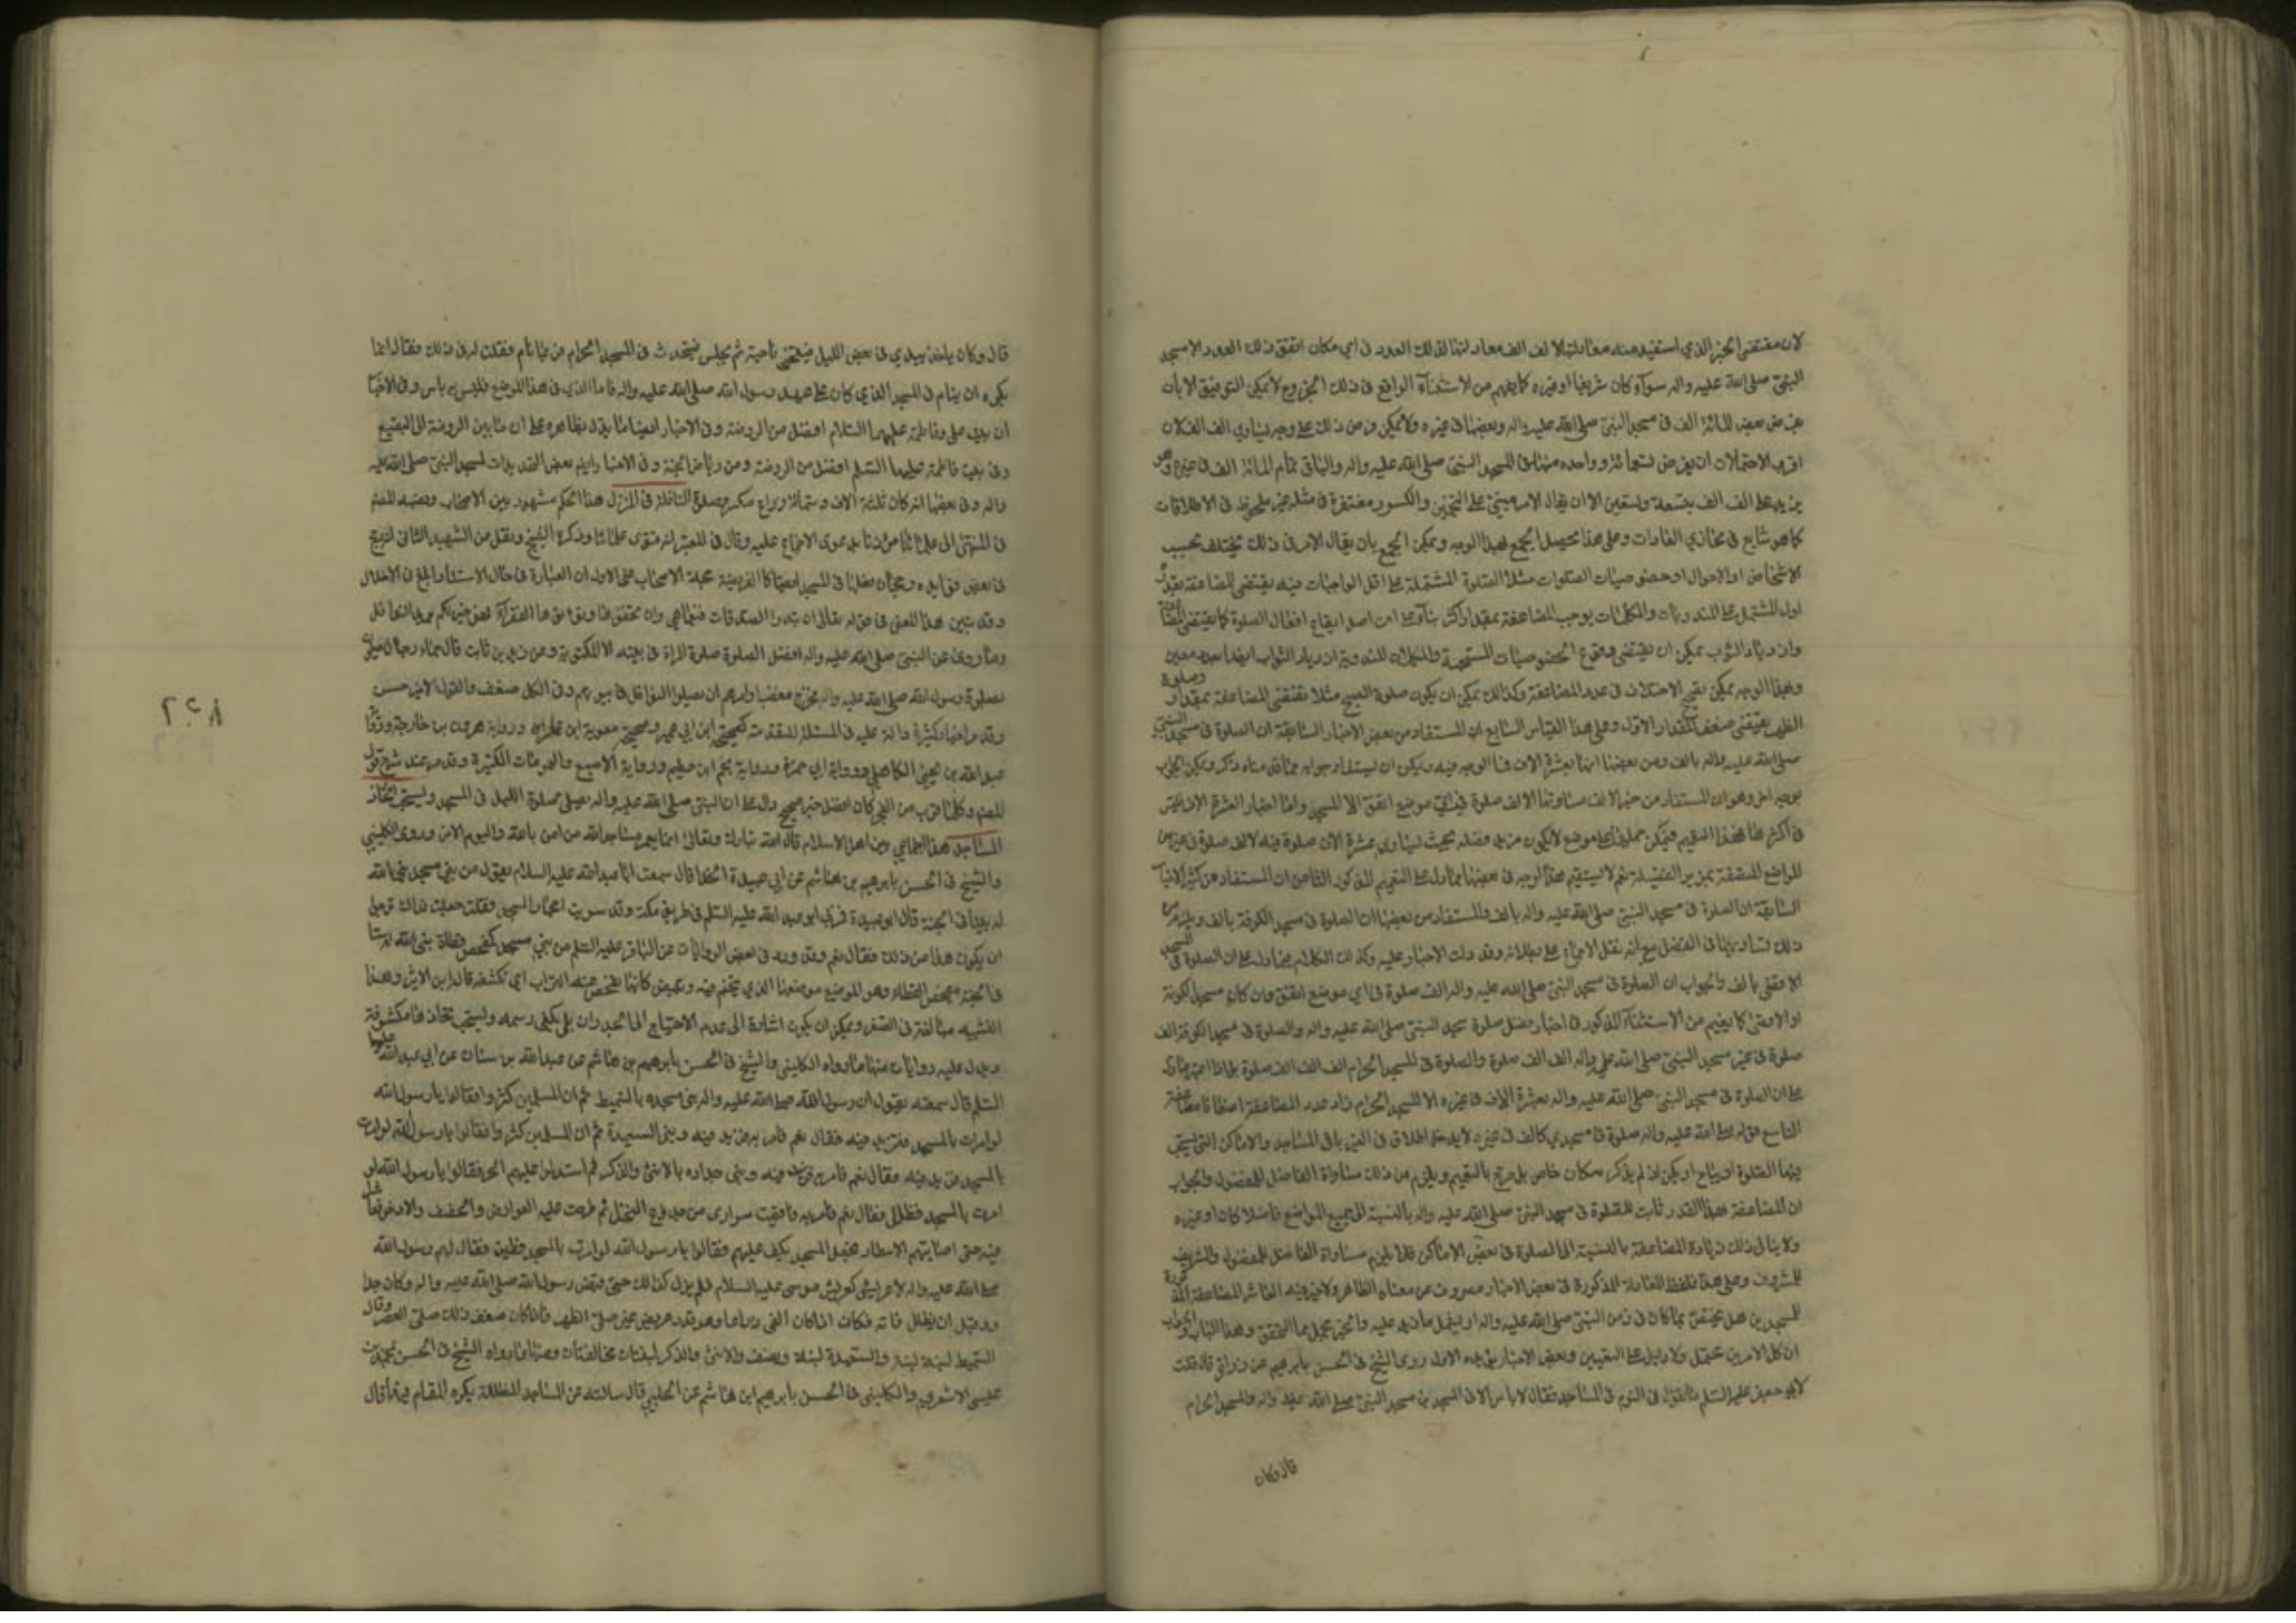 لان مقتضى الخبر الذي استفيد منه معادلتها لالف الف معادلتها لذلك العدد في اي مكان اتفق ذلك العدد الا مسجد
النبي صلى الله عليه واله سواء كان شريفا او غيره كما يفهم من الاستثناء الواقع في ذلك الخبر لا يمكن التوفيق الا بان
يفرض بعض المائة الف في مسجد النبي صلى الله عليه واله وبعضها في غيره ولا يمكن فرض ذلك على وجه يساوي الف الف لان
اقرب الاحتمالات ان يفرض تسعمائة وواحده منها في المسجد النبي صلى الله عليه واله والباقي تمام المائة الف في غيره وهو
يزيد على الف الف بتسعة وتسعين الا ان يقال الامر مبني على التخمين والكسور مغتفرة في مثله غير ملحوظ في الاطلاقات
كما هو شايع في مجازي العادات وعلى هذا يحصل الجمع بهذا الوجه ويمكن الجمع بان يقال الامر في ذلك يختلف بحسب
الاشخاص او الاحوال او خصوصيات الصلوات مثلا الصلوة المشتملة على اقل الواجبات فيه يقتضي المضاعفة بقدر
اول المشتمل على المندوبات والمكملات يوجب المضاعفة بمقدار اكثر بناء على ان اصل ايقاع افعال الصلوة كما يقتضي
وان يمكن ان يقتضي وقوع الخصوصيات المستحبة والمكملات ازدياد الثواب ايضا
وبهذا الوجه يمكن الاختلاف في عدد المضاعفة وكذلك يمكن ان يكون صلوة الصبح مثلا يقتضي المضاعفة بمقدار وصلوة
الظهر يقتضي ضعف المقدار الاول وعلى هذا القياس السابع ان المستفاد من بعض الاخبار السابقة ان الصلوة في مسجد النبي
صلى الله عليه واله بالف ومن بعضها انها بعشرة الاف فما الوجه فيه ويمكن ان يستفاد جوابه مما قدمناه ذكر ويمكن الجواب
بوجه اخر وهو ان المستفاد من خبر الالف مساواتها لالف صلوة في اي موضع اتفق الا المسجد واما اخبار العشرة الاف فليس
في اكثرها هذا التعميم فيمكن حملها على موضع لا يكون مزيد فضله بحيث يساوي عشرة الاف صلوة فيه لالف صلوة في غيره من
المواضع المتفقة بمزيد الفضيلة نعم لا يستقيم هذا الوجه في بعضها مما دل على التعميم المذكور الثامن ان المستفاد من كثير
السابقة ان الصلوة في مسجد النبي صلى الله عليه واله بالف والمستفاد من بعضها ان الصلوة في مسجد الكوفة بالف ويلزم من
ذلك تساويهما في الفضل مع انه نقل الاجماع على بطلانه وقد دلت الاخبار عليه وكذلك الكلام فيما دل على ان الصلوة في المسجد
الاقصى بالف والجواب ان الصلوة في مسجد النبي صلى الله عليه واله الف صلوة في اي موضع اتفق وان كان مسجد الكوفة
او الاقصى كما يفهم من الاستثناء المذكور في اخبار فضل صلوة مسجد النبي صلى الله عليه واله والصلوة في مسجد الكوفة الف
صلوة في غير مسجد النبي صلى الله عليه واله الف الف صلوة والصلوة في المسجد الحرام الف الف الف صلوة
على ان الصلوة في مسجد النبي صلى الله عليه واله بعشرة الاف في غيره الا المسجد الحرام زاد عدد المضاعفة اضعافا مضاعفة
التاسع قوله صلى الله عليه واله صلوة في مسجدي كالف في غيره لا يدخل اطلاق في الغير باقي المساجد والاماكن التي يستحب
فيها الصلوة او يباح او يكره اذ لم يذكر مكان خاص بل صرح بالتعميم ويلزم من ذلك مساواة الفاضل المفضول والجواب
ان المضاعفة بهذا القدر ثابت للصلوة في مسجد النبي صلى الله عليه واله بالنسبة الى جميع المواضع فاضلا كان او غيره
ولا ينافي ذلك زيادة المضاعفة بالنسبة الى الصلوة في بعض الاماكن فلا يلزم مساواة الفاضل للمفضول والشريف
للمشروف وعلى هذا فلفظ المعادلة المذكورة في بعض الاخبار مصروف عن معناه الظاهر ولا ضير فيه العاشر المضاعفة
للمسجدين هل يختص بما كان في زمن النبي صلى الله عليه واله او يشمل ما زيد عليه
ان كل الامرين محتمل ولا دليل على التعيين وبعض الاخبار الاول روى الشيخ في الحسن بابرهيم عن زرارة قال قلت
لابي جعفر عليه السلم ما تقول في النوم في المساجد فقال لا باس الا في المسجدين مسجد النبي صلى الله عليه واله والمسجد الحرام
قال وكان
قال وكان ياخذ بيدي في بعض الليل فيتنحى ناحية ثم يجلس فيتحدث في المسجد الحرام فربما نام فقلت له في ذلك فقال انما
يكره ان ينام في المسجد الذي كان على عهد رسول الله صلى الله عليه واله فاما الذي في هذا الموضع فليس به باس وفي الاخبار
ان بيت علي وفاطمة عليهما السلام افضل من الروضة وفي الاخبار ايضا ما يدل بظاهره على ان ما بين الروضة الى البقيع
وفي بيت فاطمة عليها السلم افضل من الروضة ومن رياض الجنة وفي الاخبار ايضا بعض التحديدات لمسجد النبي صلى الله عليه
واله وفي بعضها انه كان ثلثة الاف وستمائة ذراع مكسرة وصلوة النافلة في المنزل هذا الحكم مشهور بين الاصحاب ونسبه المصنف
في المنتهى الى علمائنا مؤذنا بدعوى الاجماع عليه وقال في المعتبر انه فتوى علمائنا وذكره الشيخ ونقل من الشهيد الثاني انه رجح
في بعض فوايده رجحان فعلها في المسجد ايضا كالفريضة حجة الاصحاب على الاول ان العبادة في حال الاستتار ابلغ في الاخلاص
وقد تبين هذا المعنى في قوله تعالى ان تبدوا الصدقات فنعما هي وان تخفوها وتؤتوها الفقراء فهو خير لكم
وما روي عن النبي صلى الله عليه واله افضل الصلوة صلوة المرء في بيته الا المكتوبة وعن زيد بن ثابت قال جاء رجال يصلون
بصلوة رسول الله صلى الله عليه واله فخرج مغضبا وامرهم ان يصلوا النوافل في بيوتهم وفي الكل ضعف والقول الاخر حسن
وقد مر اخبار كثيرة دالة عليه في المسئلة المتقدمة كصحيحة ابن ابي عمير وصحيحة معوية ابن عمار ورواية هرون بن خارجة
عبد الله بن يحيى الكاهلي ورواية ابي حمزة ورواية نجم ابن حطيم ورواية الاصبغ والعمومات الكثيرة وقد مر عند شرح قول
المصنف وكلما قرب من الفجر كان افضل خبر صحيح دال على ان النبي صلى الله عليه واله يصلي صلوة الليل في المسجد ويستحب اتخاذ
المساجد هذا اجماعي بين اهل الاسلام قال الله تبارك وتعالى انما يعمر مساجد الله من امن بالله واليوم الاخر وروى الكليني
والشيخ في الحسن بابرهيم بن هاشم عن ابي عبيدة الحذا قال سمعت ابا عبد الله عليه السلام يقول من بنى مسجدا بنى الله
له بيتا في الجنة قال ابو عبيدة فمر بي ابو عبد الله عليه السلم في طريق مكة وقد سويت احجارا لمسجد فقلت جعلت فداك نرجو
ان يكون هذا من ذلك فقال نعم وقد ورد في بعض الروايات عن الباقر عليه السلم من بنى مسجدا كمفحص قطاة بنى الله له بيتا
في الجنة ومفحص القطاة وهو الموضع موضعها الذي تجثم فيه وتبيض كانها تفحص عنه التراب اي تكشفه قاله ابن الاثير وهذا
التشبيه مبالغة في الصغر ويمكن ان يكون اشارة الى عدم الاحتياج الى الجدران بل يكفي رسمه ويستحب اتخاذها مكشوفة
ويدل عليه روايات منها ما رواه الكليني والشيخ في الحسن بابرهيم بن هاشم عن عبد الله بن سنان عن ابي عبد الله عليه
السلم قال سمعته يقول ان رسول الله صلى الله عليه واله بنى مسجده بالسميط ثم ان المسلمين كثروا فقالوا يا رسول الله
لو امرت بالمسجد فزيد فيه فقال نعم فامر به فزيد فيه وبنى السعيدة ثم ان المسلمين كثروا فقالوا يا رسول الله لو امرت
بالمسجد فزيد فيه فقال نعم فامر به فزيد فيه وبنى جداره بالانثى والذكر ثم اشتد عليهم الحر فقالوا يا رسول الله لو
امرت بالمسجد فظلل فقال نعم فامر به فاقيمت سواري من جذوع النخل ثم طرحت عليه العوارض والخصف والاذخر فعاشوا
فيه حتى اصابتهم الامطار فجعل المسجد يكف عليهم فقالوا يا رسول الله لو امرت بالمسجد فطين فقال لهم رسول الله
صلى الله عليه واله لا عريش كعريش موسى عليه السلام فلم يزل كذلك حتى قبض رسول الله صلى الله عليه واله وكان جداره
قبل ان يظلل قامة فكان اذا كان الفئ ذراعا وهو قدر مربض عنز صلى الظهر فاذا كان ضعف ذلك صلى العصر وقال
السميط لبنة لبنة والسعيدة لبنة ونصف والانثى والذكر لبنتان مخالفتان ومنها ما رواه الشيخ في الحسن بمحمد بن
عيسى الاشعري والكليني في الحسن بابرهيم ابن هاشم عن الحلبي قال سالته عن المساجد المظللة يكره المقام فيها قال